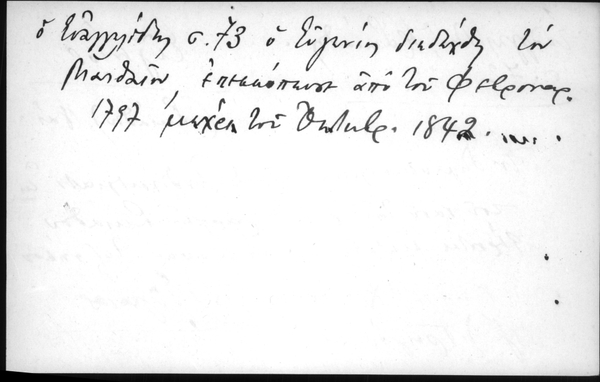 ὁ Εὐαγγελίδης σ. 73 ὁ Εὐγενίος διεδέχθη τὸν
Ματθαῖον, ἐπεσκόπευσε ἀπὸ τοῦ Φεβρουαρ.
1797 μέχρι τοῦ Ὀκτωβρ. 1842.